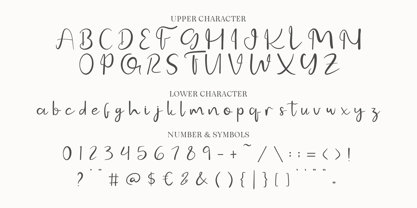 UPPER CHARACTER
A B C D E F G H I J K L M N
O P Q R S T U V W X Y Z
LOWER CHARACTER
a b c d e f g h i j k l m n o p q r s t u v w x y z
NUMBER & SYMBOLS
0 1 2 3 4 5 6 7 8 9 - + ~ / \ : ; = < > !
? # @ $ € & ( ) { | } [ ]